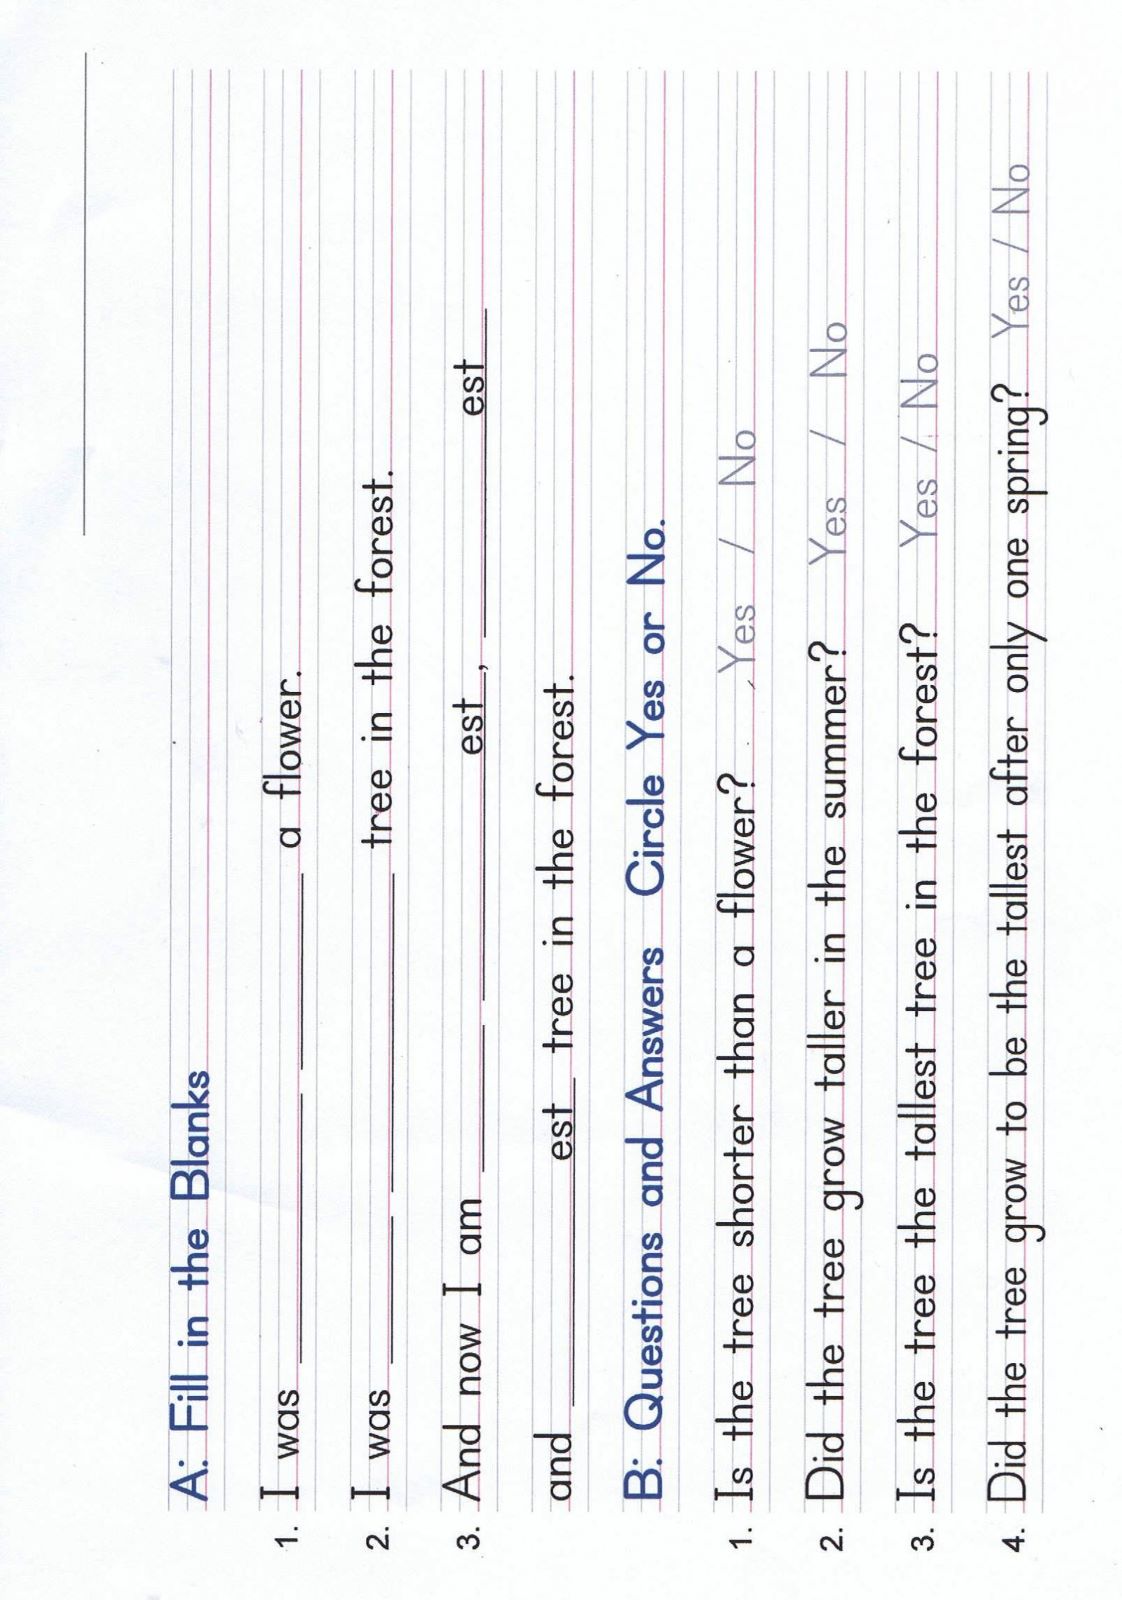 A: Fill in the Blanks
1. I was ________ ________ a flower.
2. I was ________ ________ tree in the forest.
3. And now I am ________ ________est, ________est
and ________est tree in the forest.
B: Questions and Answers Circle Yes or No.
1. Is the tree shorter than a flower? Yes / No
2. Did the tree grow taller in the summer? Yes / No
3. Is the tree the tallest tree in the forest? Yes / No
4. Did the tree grow to be the tallest after only one spring? Yes / No